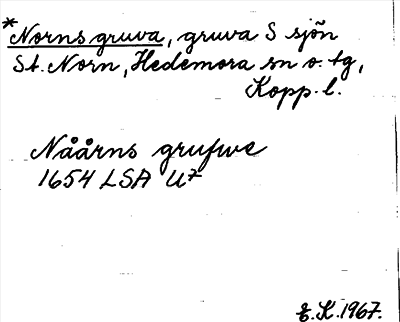 *Norns gruva, gruva S sjön
St. Norn, Hedemora sn o. tg,
Kopp. l.
Nåårns grufwe
1654 LSA U7
E.K. 1967.